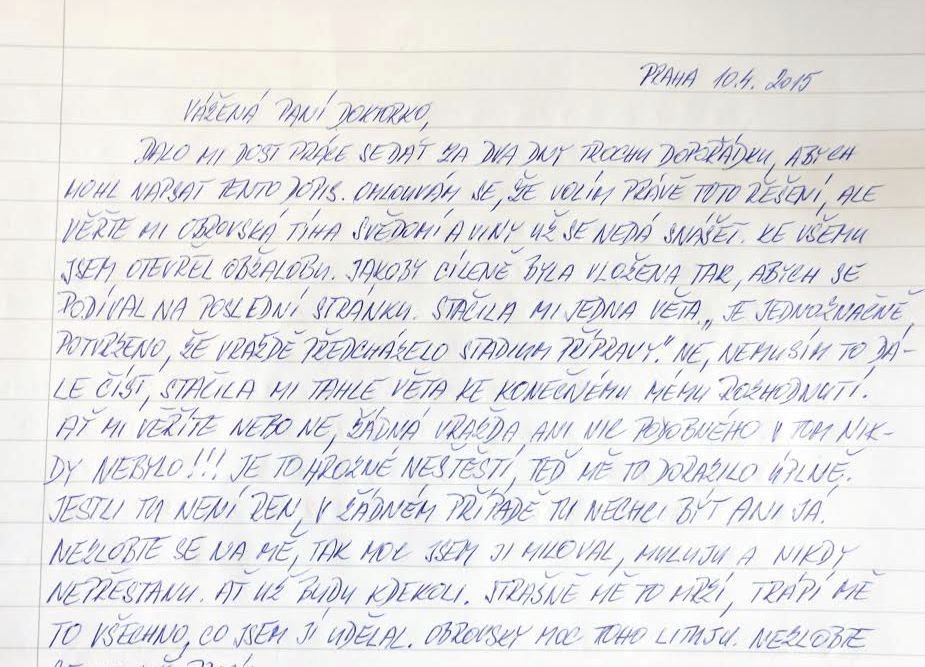 PRAHA 10.4. 2015
VÁŽENÁ PANÍ DOKTORKO,
DALO MI DOST PRÁCE SE DÁT ZA DVA DNY TROCHU DOPOŘÁDKU, ABYCH
MOHL NAPSAT TENTO DOPIS. OMLOUVÁM SE, ŽE VOLÍM PRÁVĚ TOTO ŘEŠENÍ, ALE
VĚŘTE MI OBROVSKÁ TÍHA SVĚDOMÍ A VINY UŽ SE NEDÁ SNÁŠET. KE VŠEMU
JSEM OTEVŘEL OBŽALOBU. JAKOBY CÍLENĚ BYLA VLOŽENA TAK, ABYCH SE
PODÍVAL NA POSLEDNÍ STRÁNKU. STAČILA MI JEDNA VĚTA „JE JEDNOZNAČNĚ
POTVRZENO, ŽE VRAŽDĚ PŘEDCHÁZELO STADIUM PŘÍPRAVY." NE, NEMUSÍM TO DÁ-
LE ČÍST, STAČILA MI TAHLE VĚTA KE KONEČNÉMU MÉMU ROZHODNUTÍ.
AŤ MI VĚŘÍTE NEBO NE, ŽÁDNÁ VRAŽDA ANI NIC PODOBNÉHO V TOM NIK-
DY NEBYLO!!! JE TO HROZNÉ NEŠTĚSTÍ, TEĎ MĚ TO DORAZILO ÚPLNĚ.
JESTLI TU NENÍ ZEN, V ŽÁDNÉM PŘÍPADĚ TU NECHCI BÝT ANI JÁ.
NEZLOBTE SE NA MĚ, TAK MOC JSEM JI MILOVAL, MILUJU A NIKDY
NEPŘESTANU. AŤ UŽ BUDU KDEKOLI. STRAŠNĚ MĚ TO MRZÍ, TRÁPÍ MĚ
TO VŠECHNO, CO JSEM JÍ UDĚLAL. OBROVSKY MOC TOHO LITUJU. NEZLOBTE